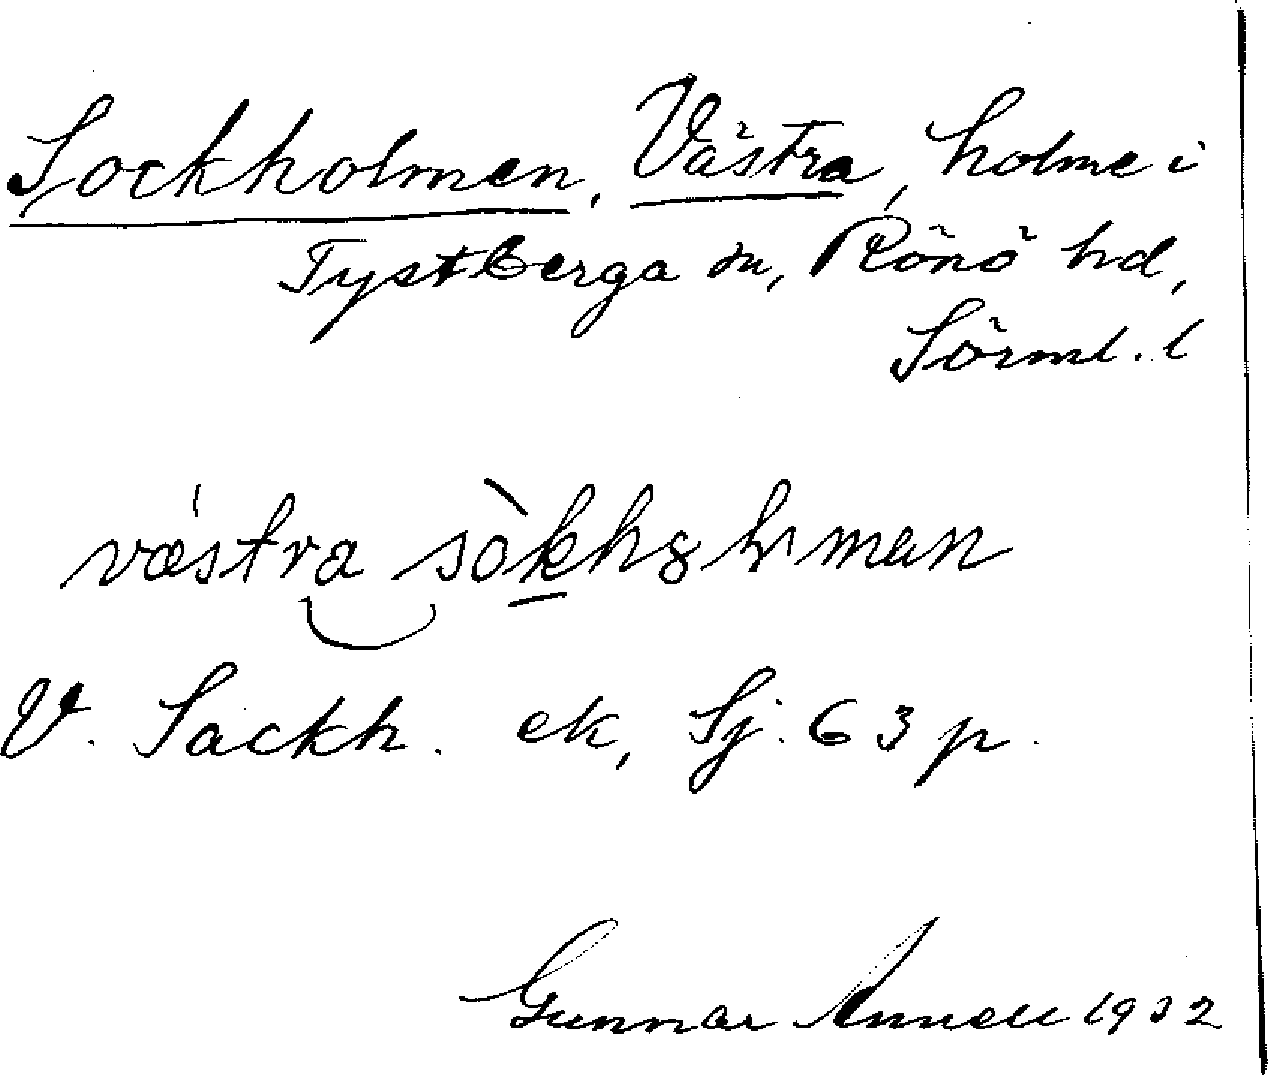 Sockholmen, Västra, holme i
Tystberga sn, Rönö hd,
Sörml. l
västra
V. Sackh. ek, Sj. 63 p.
Gunnar Annell 1932